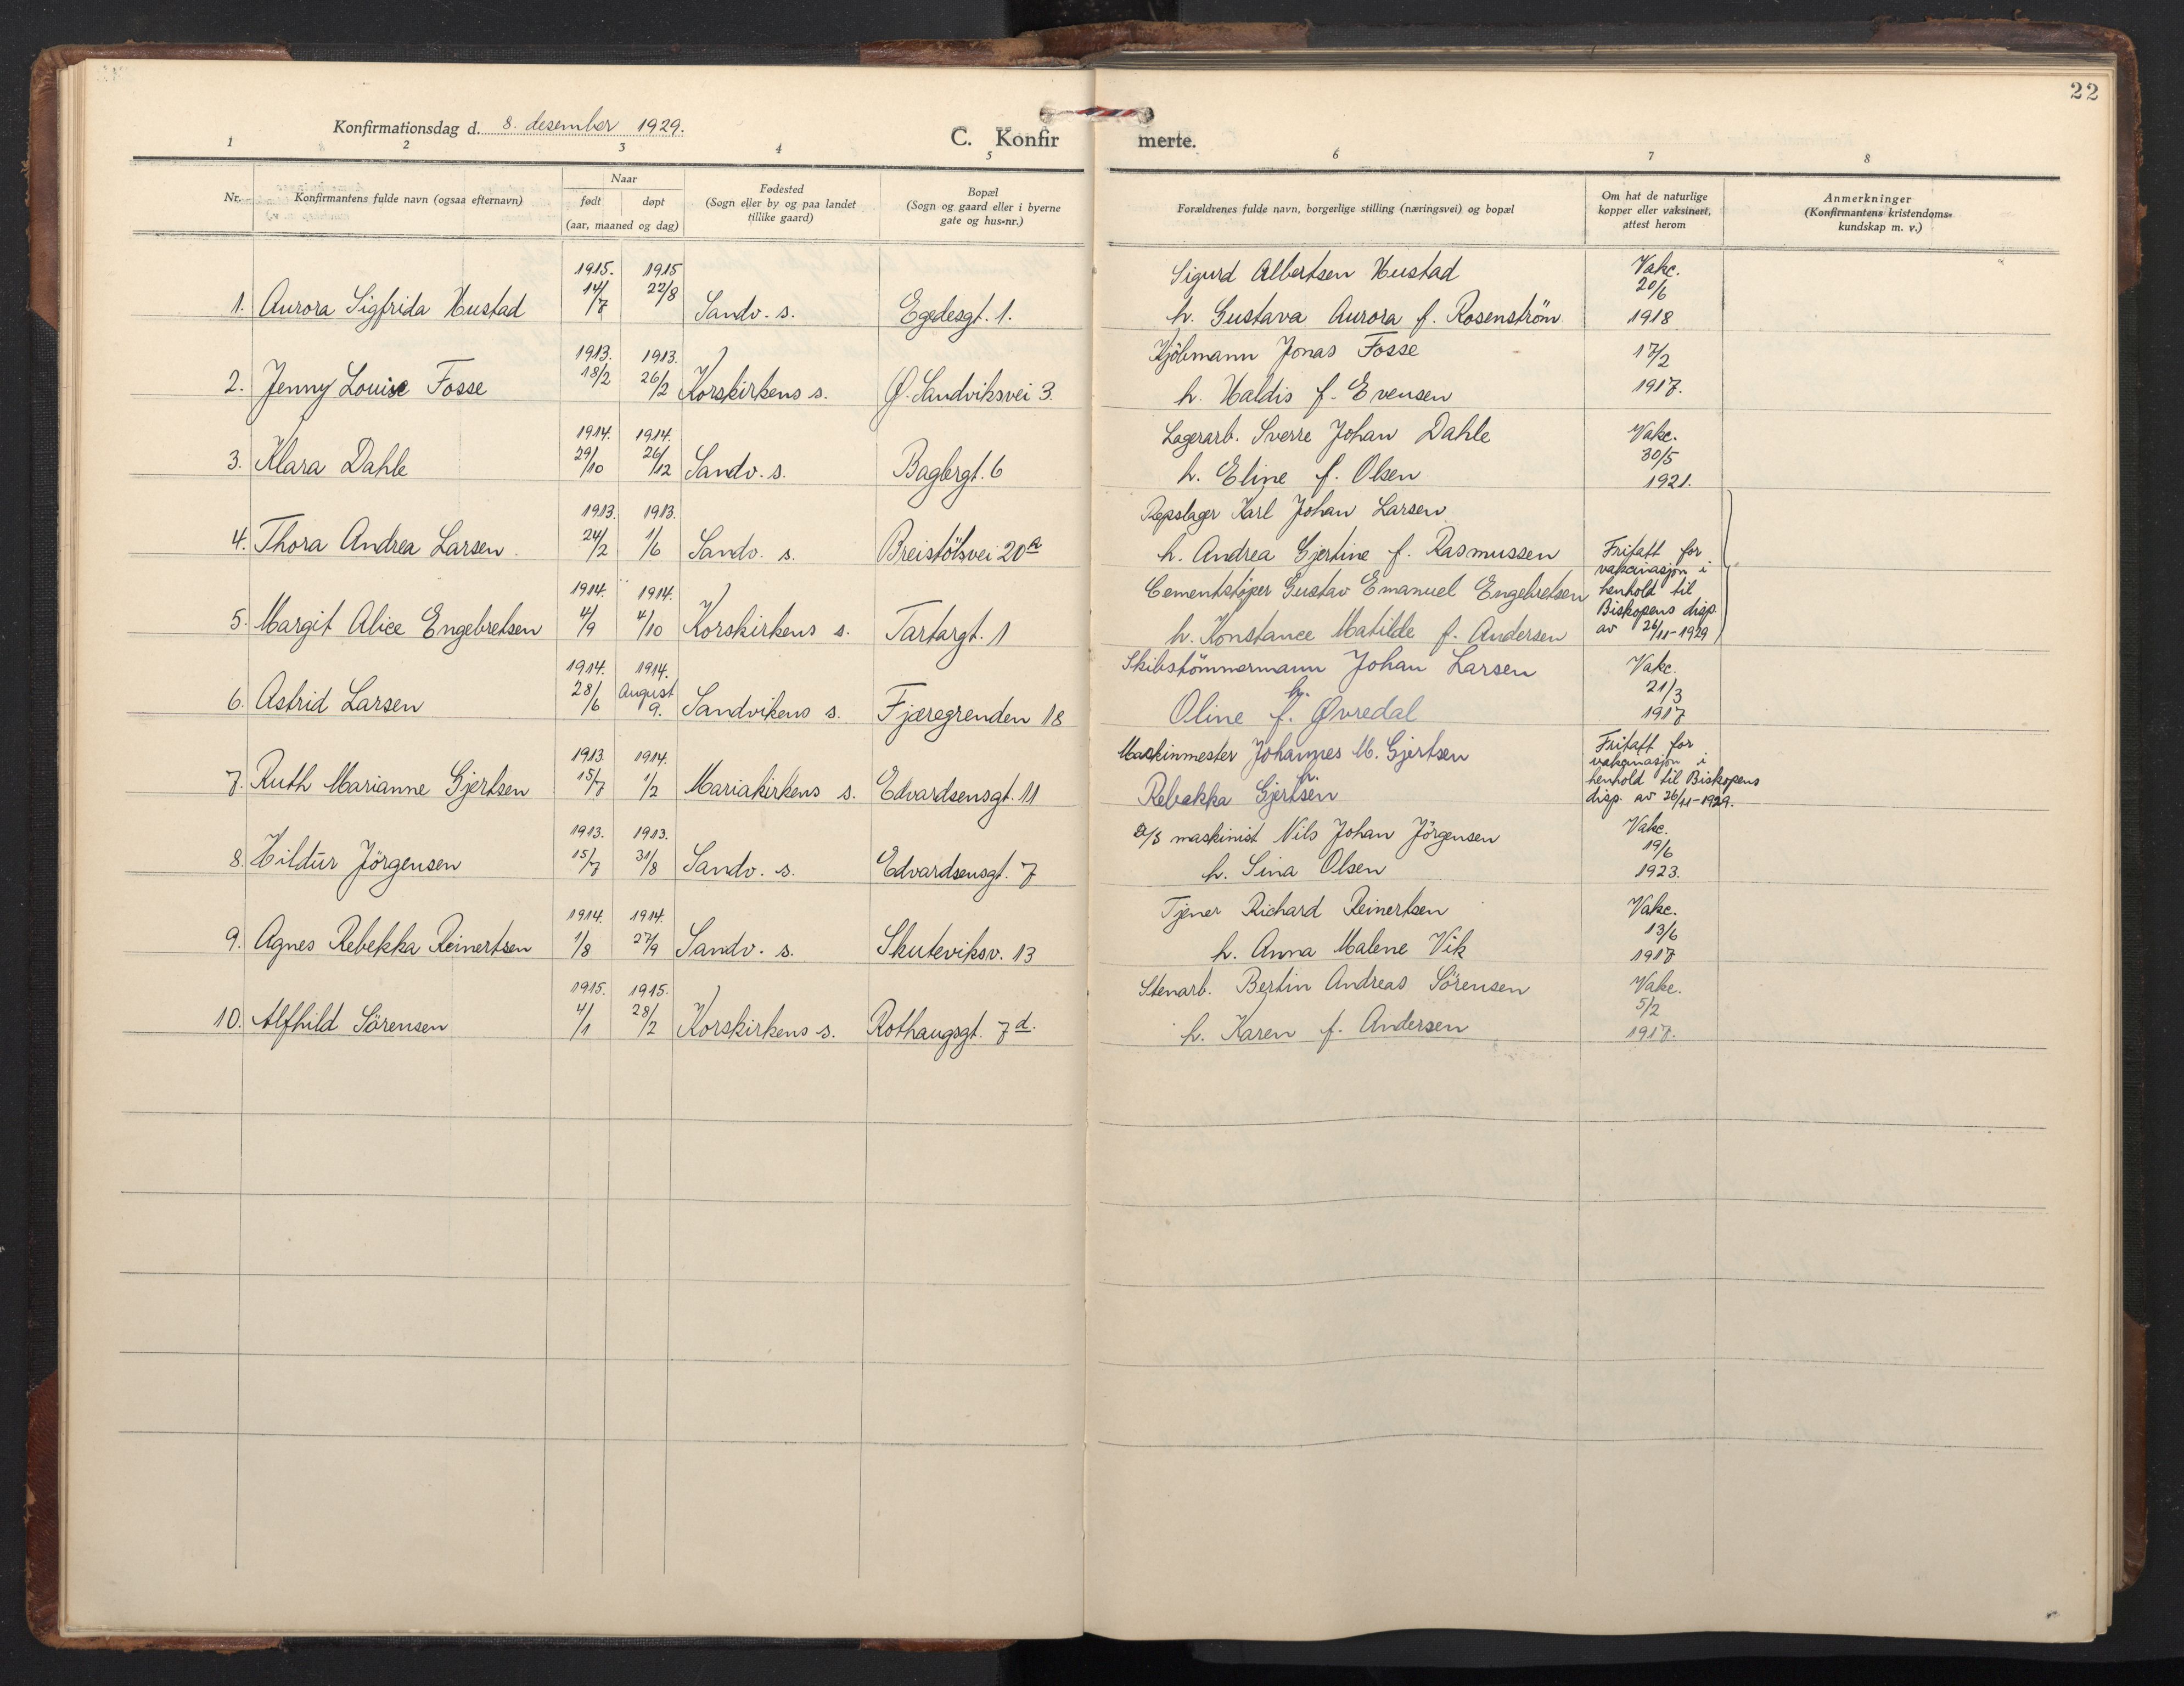 22
Konfirmationsdag d. 8. desember 1929.
C. Konfirmerte.
1 2 3 4 5 6 7 8
Nr.
Konfirmantens fulde navn (ogsaa efternavn)
Naar
født døpt
(aar, maaned og dag)
Fødested
(Sogn eller by og paa landet
tillike gaard)
Bopæl
(Sogn og gaard eller i byerne
gate og hus-nr.)
Forældrenes fulde navn, borgerlige stilling (næringsvei) og bopæl
Om hat de naturlige
kopper eller vaksinert,
attest herom
Anmerkninger
(Konfirmantens kristendoms-
kundskap m. v.)
1915. 1915 Sigurd Albertsen Hustad Vakc.
14/7 22/8 20/6
1. Aurora Sigfrida Hustad Sandv. s. Egedesgt. 1. h. Gustava Aurora f. Rosenström 1918
1913. 1913. Kjöbmann Jonas Fosse 17/2
2. Jenny Louise Fosse 18/2 26/2 Korskirkens s. Ø. Sandviksvei 3. h. Haldis f. Evensen 1917.
1914. 1914. Lagerarb. Sverre Johan Dahle Vakc.
3. Klara Dahle 29/10 26/12 Sandv. s. Baglergt. 6 30/5
h. Eline f. Olsen 1921.
1913. 1913. Repslager Karl Johan Larsen
4. Thora Andrea Larsen 24/2 1/6 Sandv. s. Breistölsvei 20a h. Andrea Gjertine f. Rasmussen Fritatt for
vakcinasjon i
1914. 1914. Cementstöper Gustav Emanuel Engebretsen henhold til
Biskopens disp.
5. Margit Alice Engebretsen 4/9 4/10 Korskirkens s. Tartargt. 1 h. Konstance Matilde f. Andersen av 26/11-1929
1914. 1914. Skibstömmermann Johan Larsen Vakc.
6. Astrid Larsen 28/6 August 9. Sandvikens s. Fjæregrenden 18 h. 21/3
Oline f. Øvredal 1917
1913. 1914. Maskinmester Johannes M. Gjertsen Fritatt for
vakcinasjon i
7. Ruth Marianne Gjertsen 15/7 1/2 Mariakirkens s. Edvardsensgt. 11 h. henhold til Biskopens
Rebekka Gjertsen disp. av 26/11-1929.
1913. 1913. D/S maskinist Nils Johan Jörgensen Vakc.
8. Hildur Jörgensen 15/7 31/8 Sandv. s. Edvardsensgt. 7 19/6
h. Sina Olsen 1923.
1914. 1914. Tjener Richard Reinertsen Vakc.
9. Agnes Rebekka Reinertsen 1/8 27/9 Sandv. s. Skuteviksv. 13 13/6
h. Anna Malene Vik 1917
1915. 1915. Stenarb. Bertin Andreas Sörensen Vakc.
10. Alfhild Sörensen 4/1 28/2 Korskirkens s. Rothaugsgt. 7d. 5/2
h. Karen f. Andersen 1917.